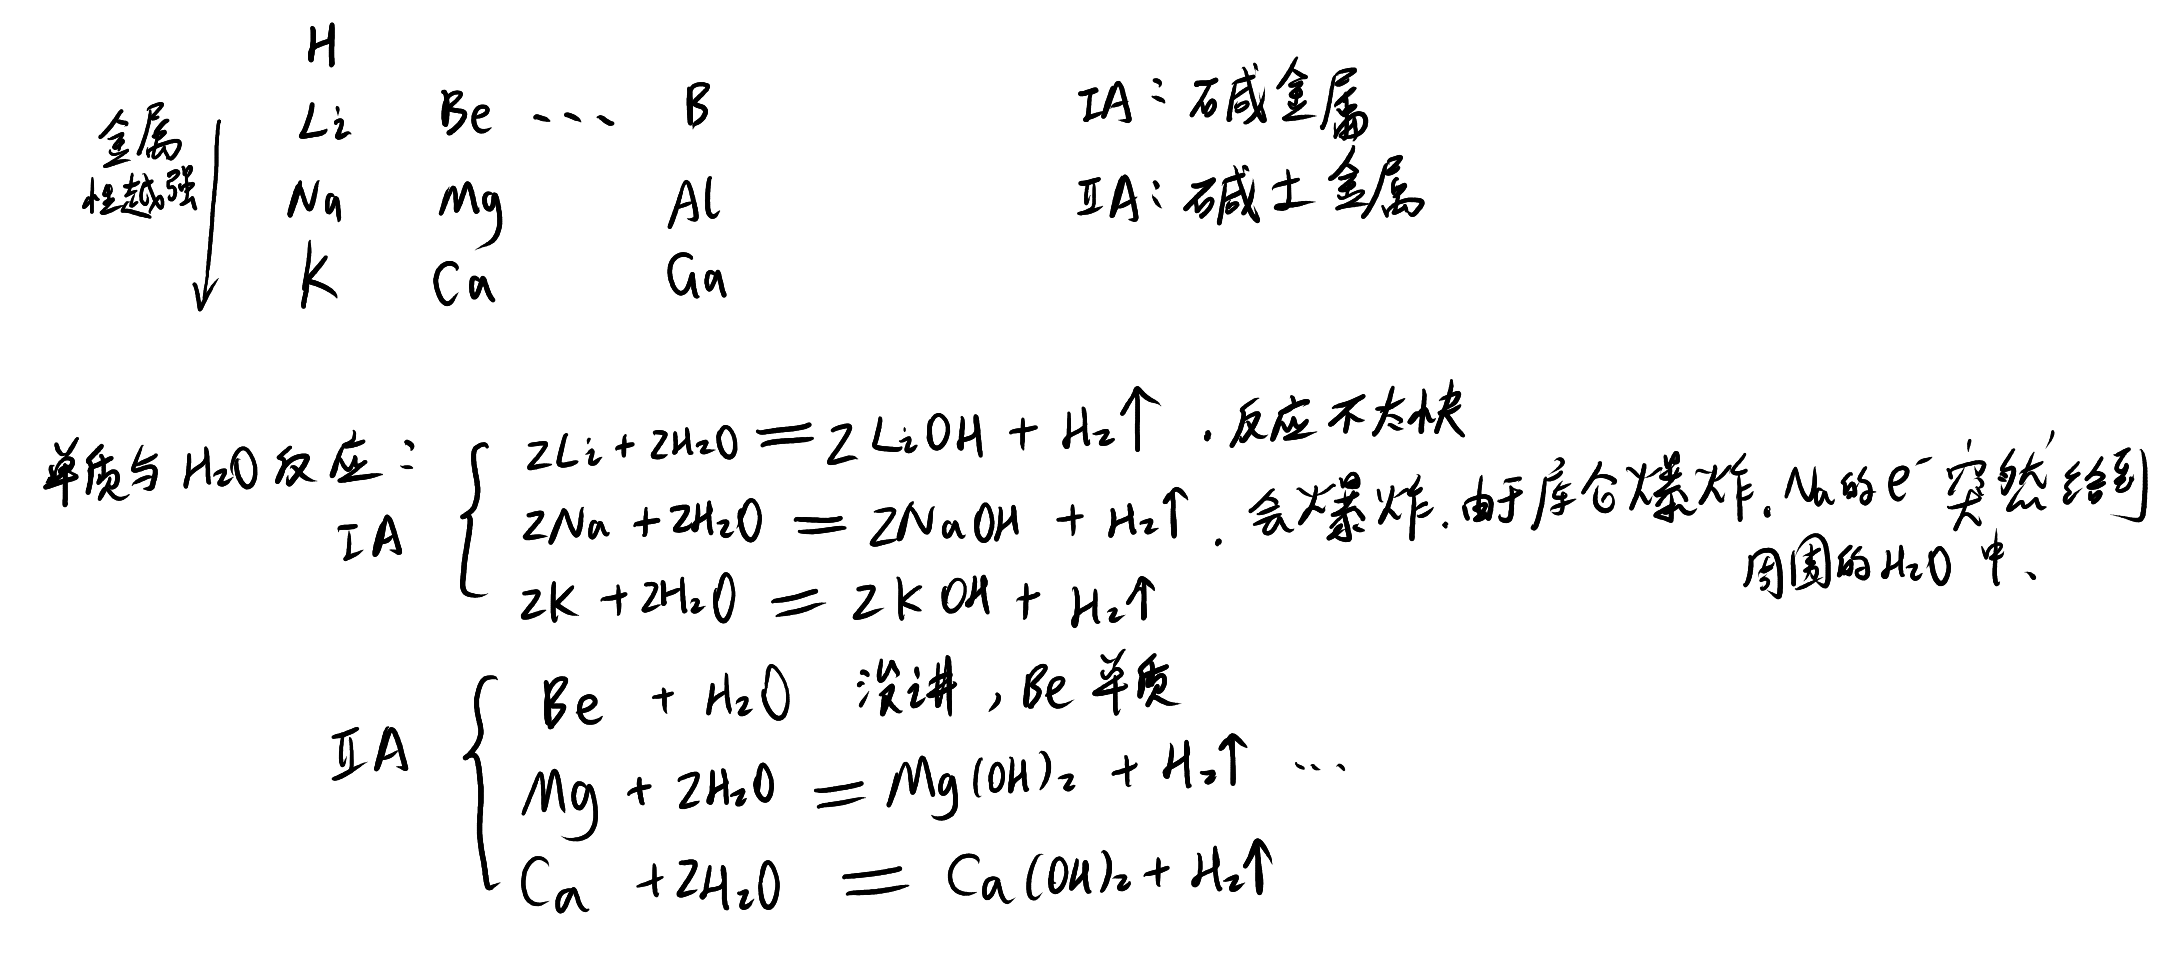 H
Li Be ... B
Na Mg Al
K Ca Ga
金属
性越强
IA：碱金属
IIA：碱土金属
单质与H₂O反应：
IA
2Li + 2H₂O = 2LiOH + H₂↑ . 反应不太快
2Na + 2H₂O = 2NaOH + H₂↑ . 会爆炸. 由于库仑爆炸. Na的e⁻突然给到
周围的H₂O中、
2K + 2H₂O = 2KOH + H₂↑
IIA
Be + H₂O 没讲, Be单质
Mg + 2H₂O = Mg(OH)₂ + H₂↑ ...
Ca + 2H₂O = Ca(OH)₂ + H₂↑